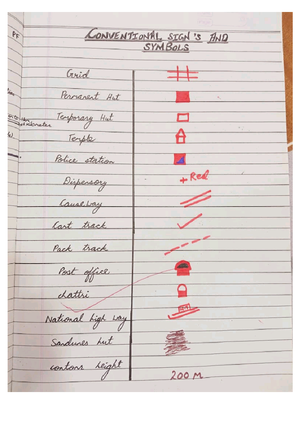 CONVENTIONAL SIGN'S AND
SYMBOLS
Grid
Permanent Hut
Temporary Hut
Temple
Police station
Dispensory
+ Red
Causeway
Cart track
Pack track
Post office
chattri
National high way
Sandunes hut
contons height
200 M